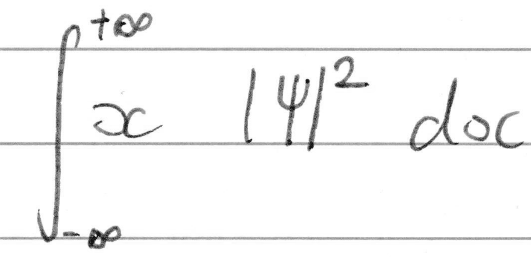 ∫_{-∞}^{+∞} x |Ψ|² dx